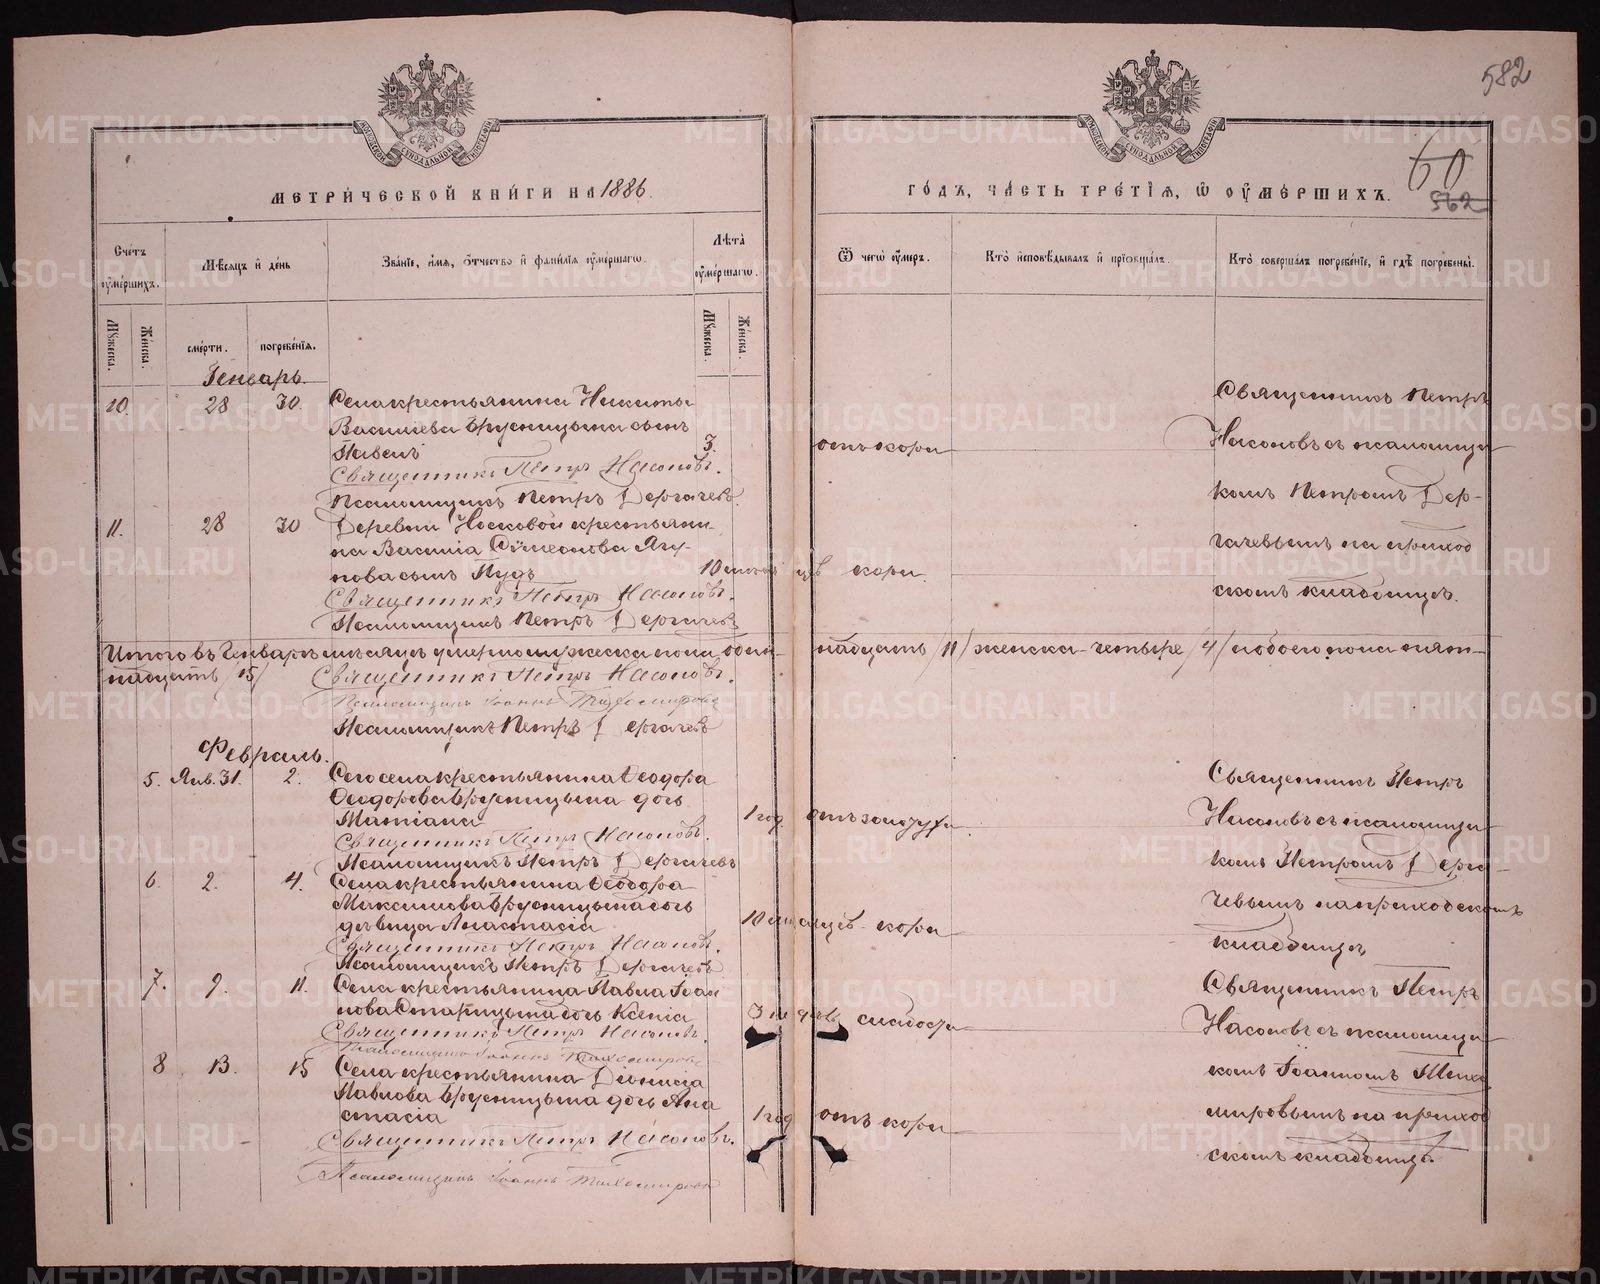 582
60
562
МЕТРИ́ЧЕСКОЙ КНИ́ГИ НА 1886
ГО́ДЪ, ЧА́СТЬ ТРЕ́ТІѦ, Ѡ҆ ОУ҆МЕ́РШИХЪ.
Сче́тъ оу҆ме́ршихъ.
Мѣ́сѧцъ и҆ де́нь
Зва́нїе, и҆́мѧ, ѻ҆́тчество и҆ фами́лїѧ оу҆ме́ршагѡ.
Лѣ́та оу҆ме́ршагѡ.
Ѿ чегѡ̀ оу҆́меръ.
Кто̀ и҆сповѣ́дывалъ и҆ прїѡбща́лъ.
Кто̀ соверша́лъ погребе́нїе, и҆ гдѣ̀ погребены̀.
Мꙋ́жеска.
Же́нска.
сме́рти.
погребе́нїѧ.
Мꙋ́жеска.
Же́нска.
Генварь.
10. 28 30. Села крестьянина Никиты
Васильева Брусницына сынъ
Павелъ 3. отъ кори
Священникъ Петръ Насоновъ.
Псаломщикъ Петръ Дергачевъ
Священникъ Петръ
Насоновъ съ псаломщи-
комъ Петромъ Дер-
гачевымъ на приход
скомъ кладбищѣ.
11. 28 30 Деревни Носковой крестьяни-
на Василія Симеонова Ягу-
нова сынъ Пудъ 10 мѣсяцевъ кори.
Священникъ Петръ Насоновъ.
Псаломщикъ Петръ Дергачевъ
Итого въ Генварѣ мѣсяцѣ умерло мужеска пола один- надцать /11/ женска четыре /4/ обоего пола пят-
надцать /15/ Священникъ Петръ Насоновъ.
Псаломщикъ Іоаннъ Тихомировъ
Псаломщикъ Петръ Дергачевъ
Февраль.
5. Янв. 31. 2. Сего села крестьянина Ѳеодора
Ѳеодорова Брусницына дочь
Татіана 1 год отъ золотухи.
Священникъ Петръ Насоновъ.
Псаломщикъ Петръ Дергачевъ
Священникъ Петръ
Насоновъ съ псаломщи-
комъ Петромъ Дерга-
чевымъ на приходскомъ
кладбищѣ
6. 2. 4. Села крестьянина Ѳеодора
Максимова Брусницына дочь
дѣвица Анастасія 10 мѣсяцевъ кори
Священникъ Петръ Насоновъ.
Псаломщикъ Петръ Дергачевъ
7. 9. 11. Села крестьянина Павла Іоан
нова Старицына дочь Ксенія слабости
Священникъ Петръ Насоновъ.
Псаломщикъ Іоаннъ Тихомировъ
Священникъ Петръ
Насоновъ съ псаломщи-
комъ Іоанномъ Тихо-
мировымъ на приход
скомъ кладбищѣ.
8 13. 15 Села крестьянина Діонисія
Павлова Брусницына дочь Ана
стасія 1 год отъ кори
Священникъ Петръ Насоновъ.
Псаломщикъ Іоаннъ Тихомировъ
METRIKI.GASO-URAL.RU